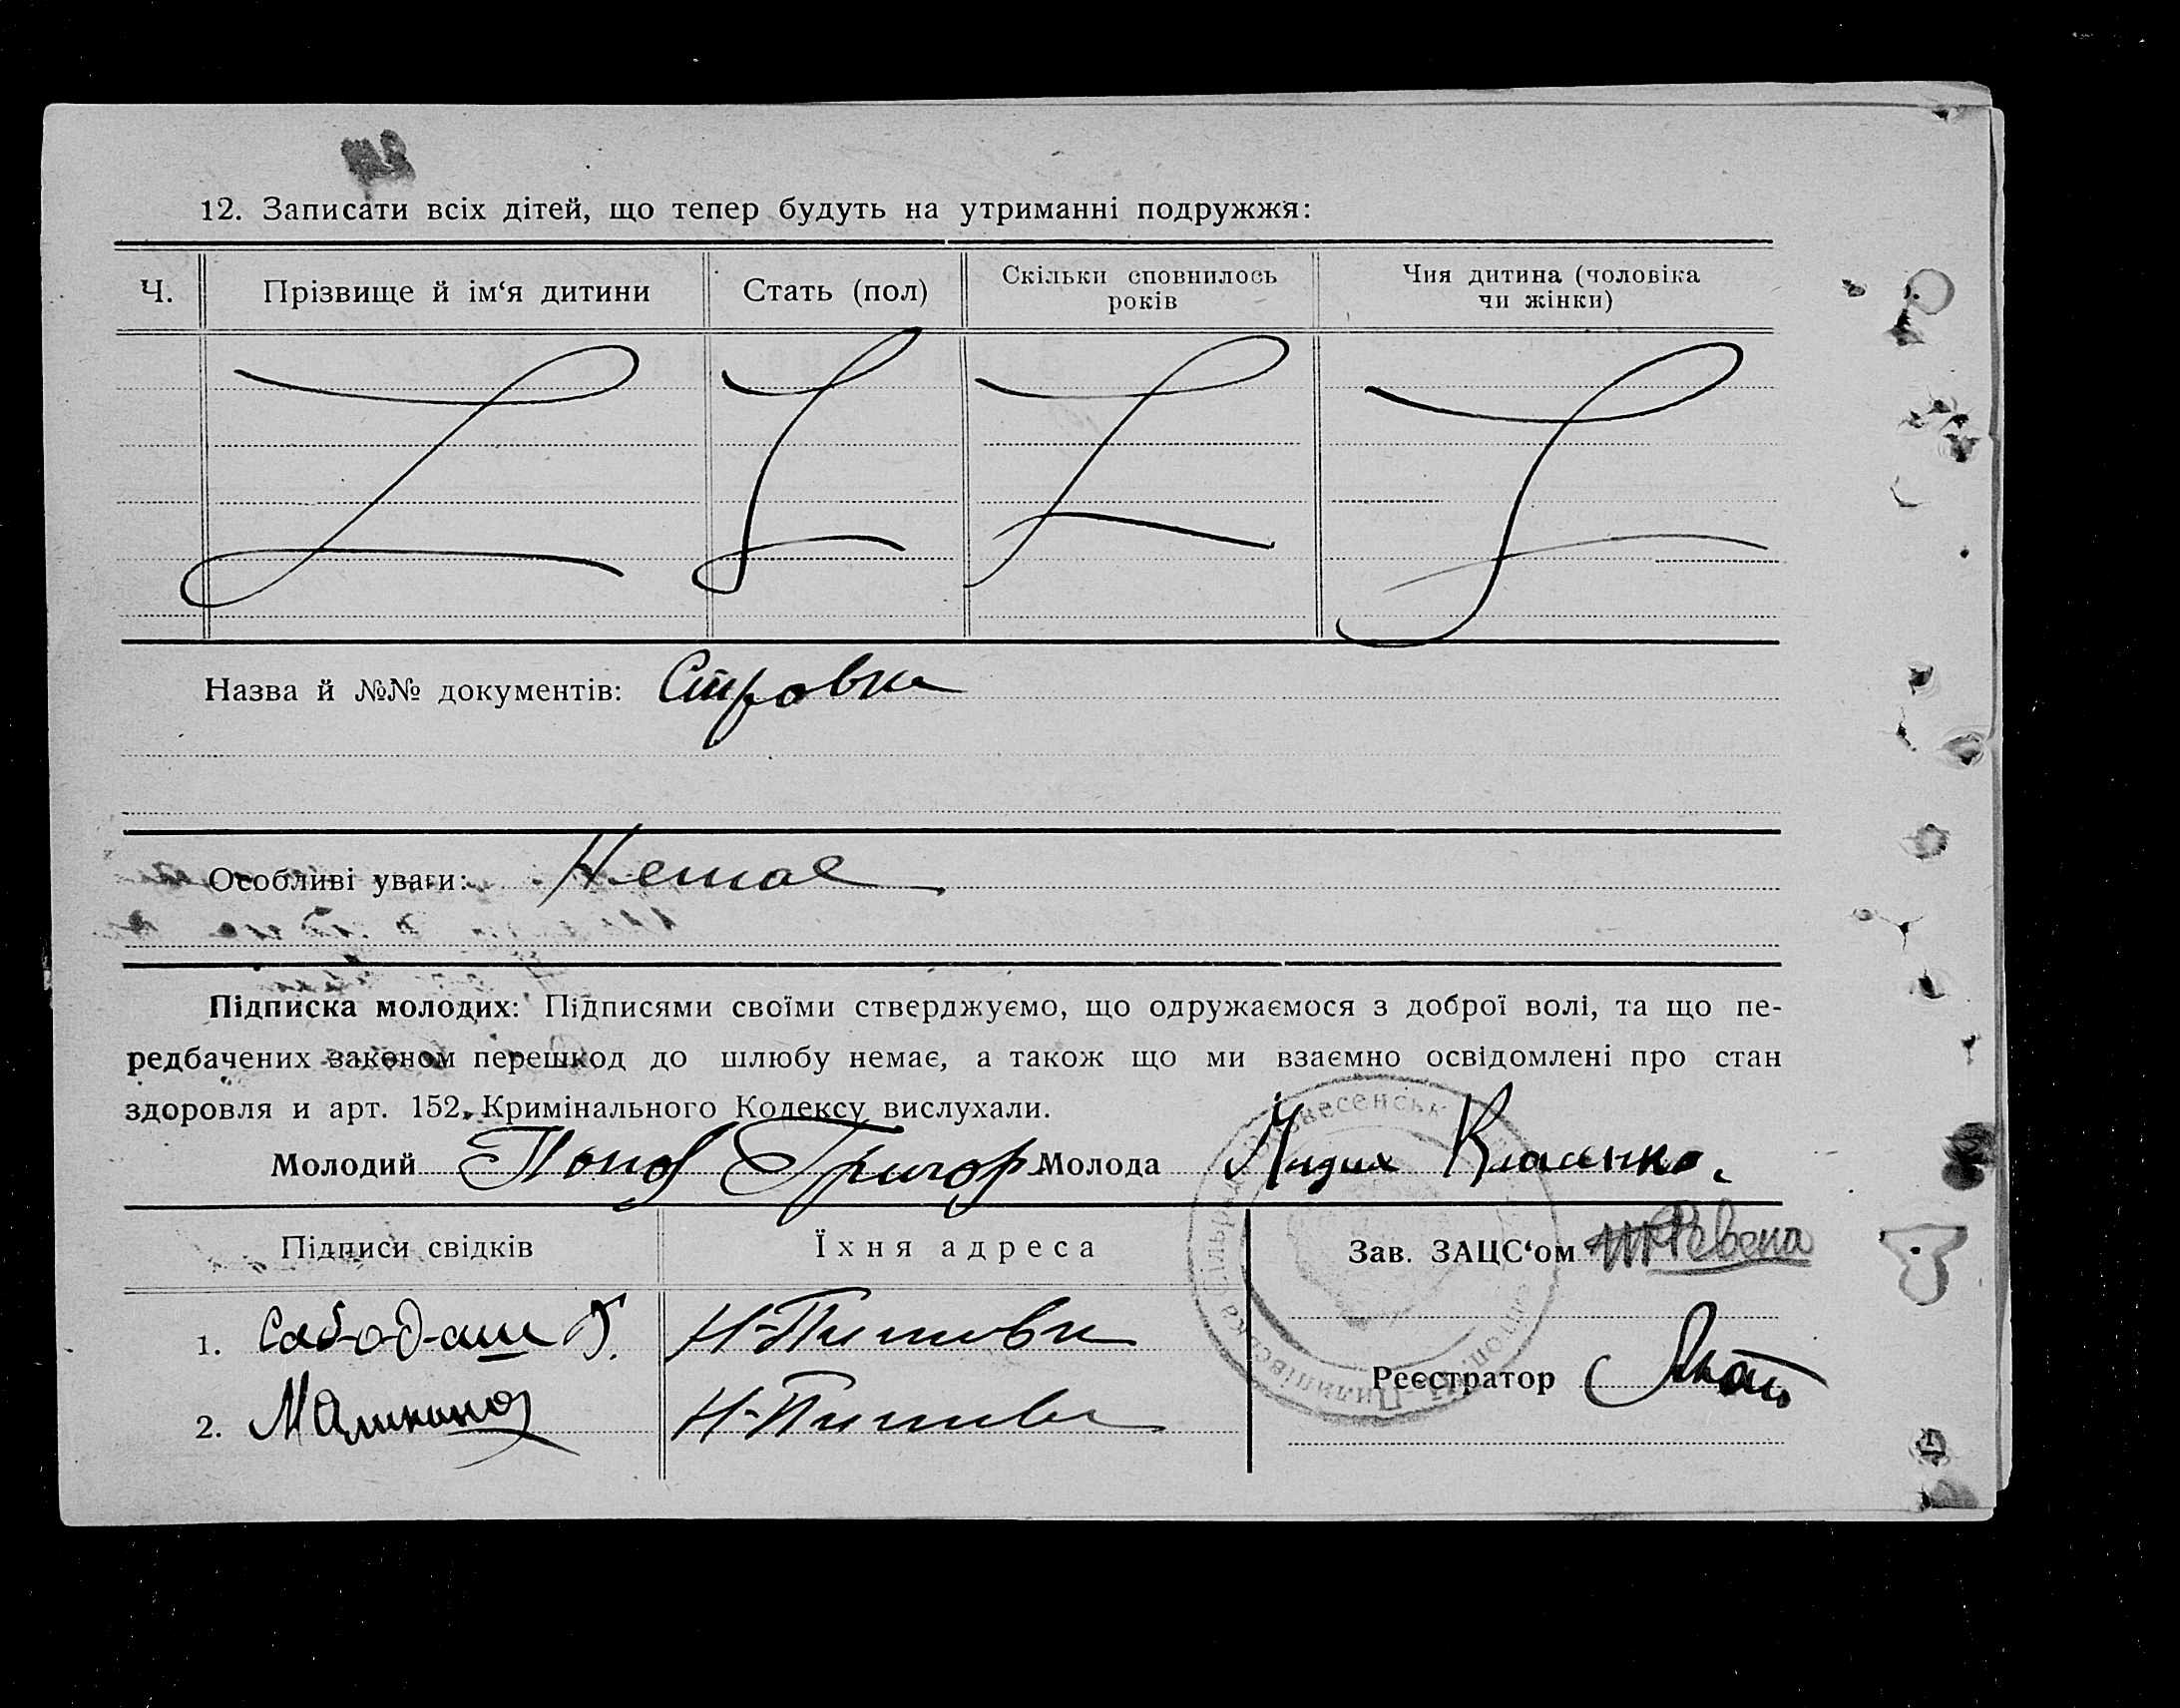 12. Записати всіх дітей, що тепер будуть на утриманні подружжя:
Ч. Прізвище й ім‘я дитини Стать (пол) Скільки сповнилось років Чия дитина (чоловіка чи жінки)
Назва й №№ документів:
Особливі уваги: Немає
Підписка молодих: Підписями своїми стверджуємо, що одружаємося з доброї волі, та що пе-
редбачених законом перешкод до шлюбу немає, а також що ми взаємно освідомлені про стан
здоровля и арт. 152, Кримінального Кодексу вислухали.
Молодий Попов Григор Молода
Підписи свідків Їхня адреса Зав. ЗАЦС‘ом Ревена
1. Сабодаш
Реєстратор
2.